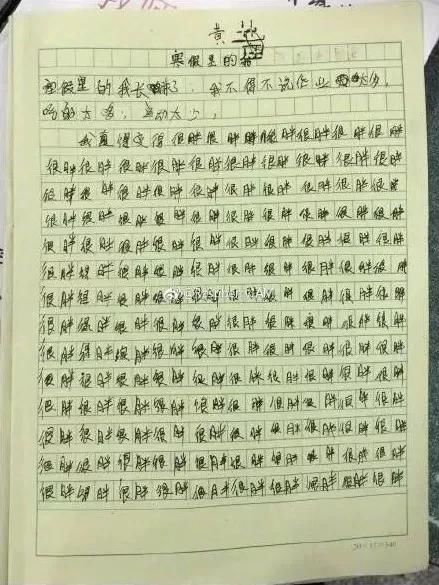 黄
寒假里的我
寒假里的我长胖了，我不得不说作业太多，
吃的太多，运动太少，
我直得变得很胖很胖胖很胖很胖很胖很胖
很胖很胖很胖很胖很胖很胖很胖很胖很胖很胖
很胖很胖很胖很胖很胖很胖很胖很胖很胖很胖
很胖很胖很胖很胖很胖很胖很胖很胖很胖很胖
很胖很胖很胖很胖很胖很胖很胖很胖很胖很胖
很胖很胖很胖很胖很胖很胖很胖很胖很胖很胖
很胖很胖很胖很胖很胖很胖很胖很胖很胖很胖
很胖很胖很胖很胖很胖很胖很胖很胖很胖很胖
很胖很胖很胖很胖很胖很胖很胖很胖很胖很胖
很胖很胖很胖很胖很胖很胖很胖很胖很胖很胖
很胖很胖很胖很胖很胖很胖很胖很胖很胖很胖
很胖很胖很胖很胖很胖很胖很胖很胖很胖很胖
很胖很胖很胖很胖很胖很胖很胖很胖很胖很胖
很胖很胖很胖很胖很胖很胖很胖很胖很胖很胖
20×17=340